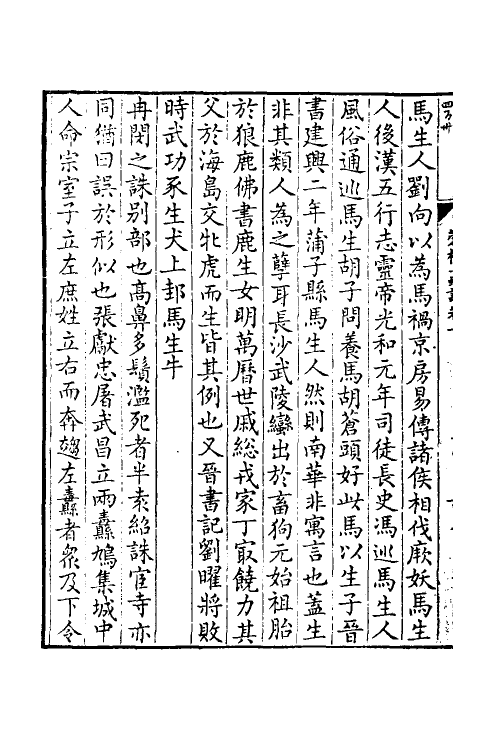 馬生人劉向以為馬禍京房易傳諸侯相伐厥妖馬生
人後漢五行志靈帝光和元年司徒長史馮廵馬生人
風俗通廵馬生胡子問養馬胡蒼頭好此馬以生子晉
書建興二年蒲子縣馬生人然則南華非寓言也蓋生
非其類人為之孽耳長沙武陵蠻出於畜狗元始祖胎
於狼鹿佛書鹿生女明萬曆世戚総戎家丁㝡饒力其
父於海島交牝虎而生皆其例也又晉書記劉曜將敗
時武功豕生犬上邽馬生牛
冉閔之誅别部也髙鼻多鬚濫死者半袁紹誅宦寺亦
同猶曰誤於形似也張獻忠屠武昌立兩纛鳩集城中
人命宗室子立左庶姓立右而奔趨左纛者衆及下令